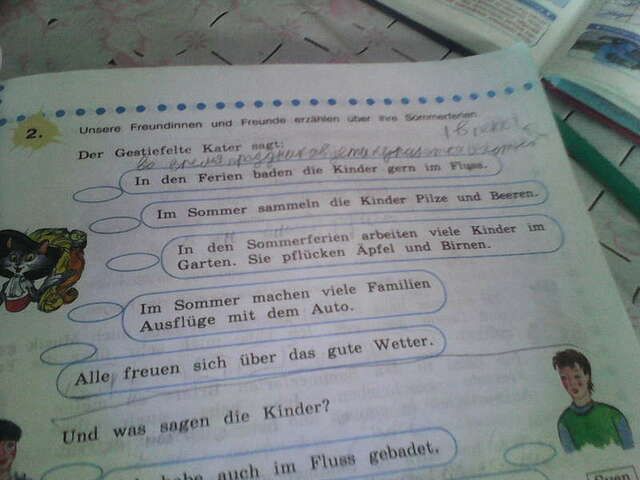 2. Unsere Freundinnen und Freunde erzählen über ihre Sommerferien.
Der Gestiefelte Kater sagt:
In den Ferien baden die Kinder gern im Fluss.
Im Sommer sammeln die Kinder Pilze und Beeren.
In den Sommerferien arbeiten viele Kinder im
Garten. Sie pflücken Äpfel und Birnen.
Im Sommer machen viele Familien
Ausflüge mit dem Auto.
Alle freuen sich über das gute Wetter.
Und was sagen die Kinder?
habe auch im Fluss gebadet.